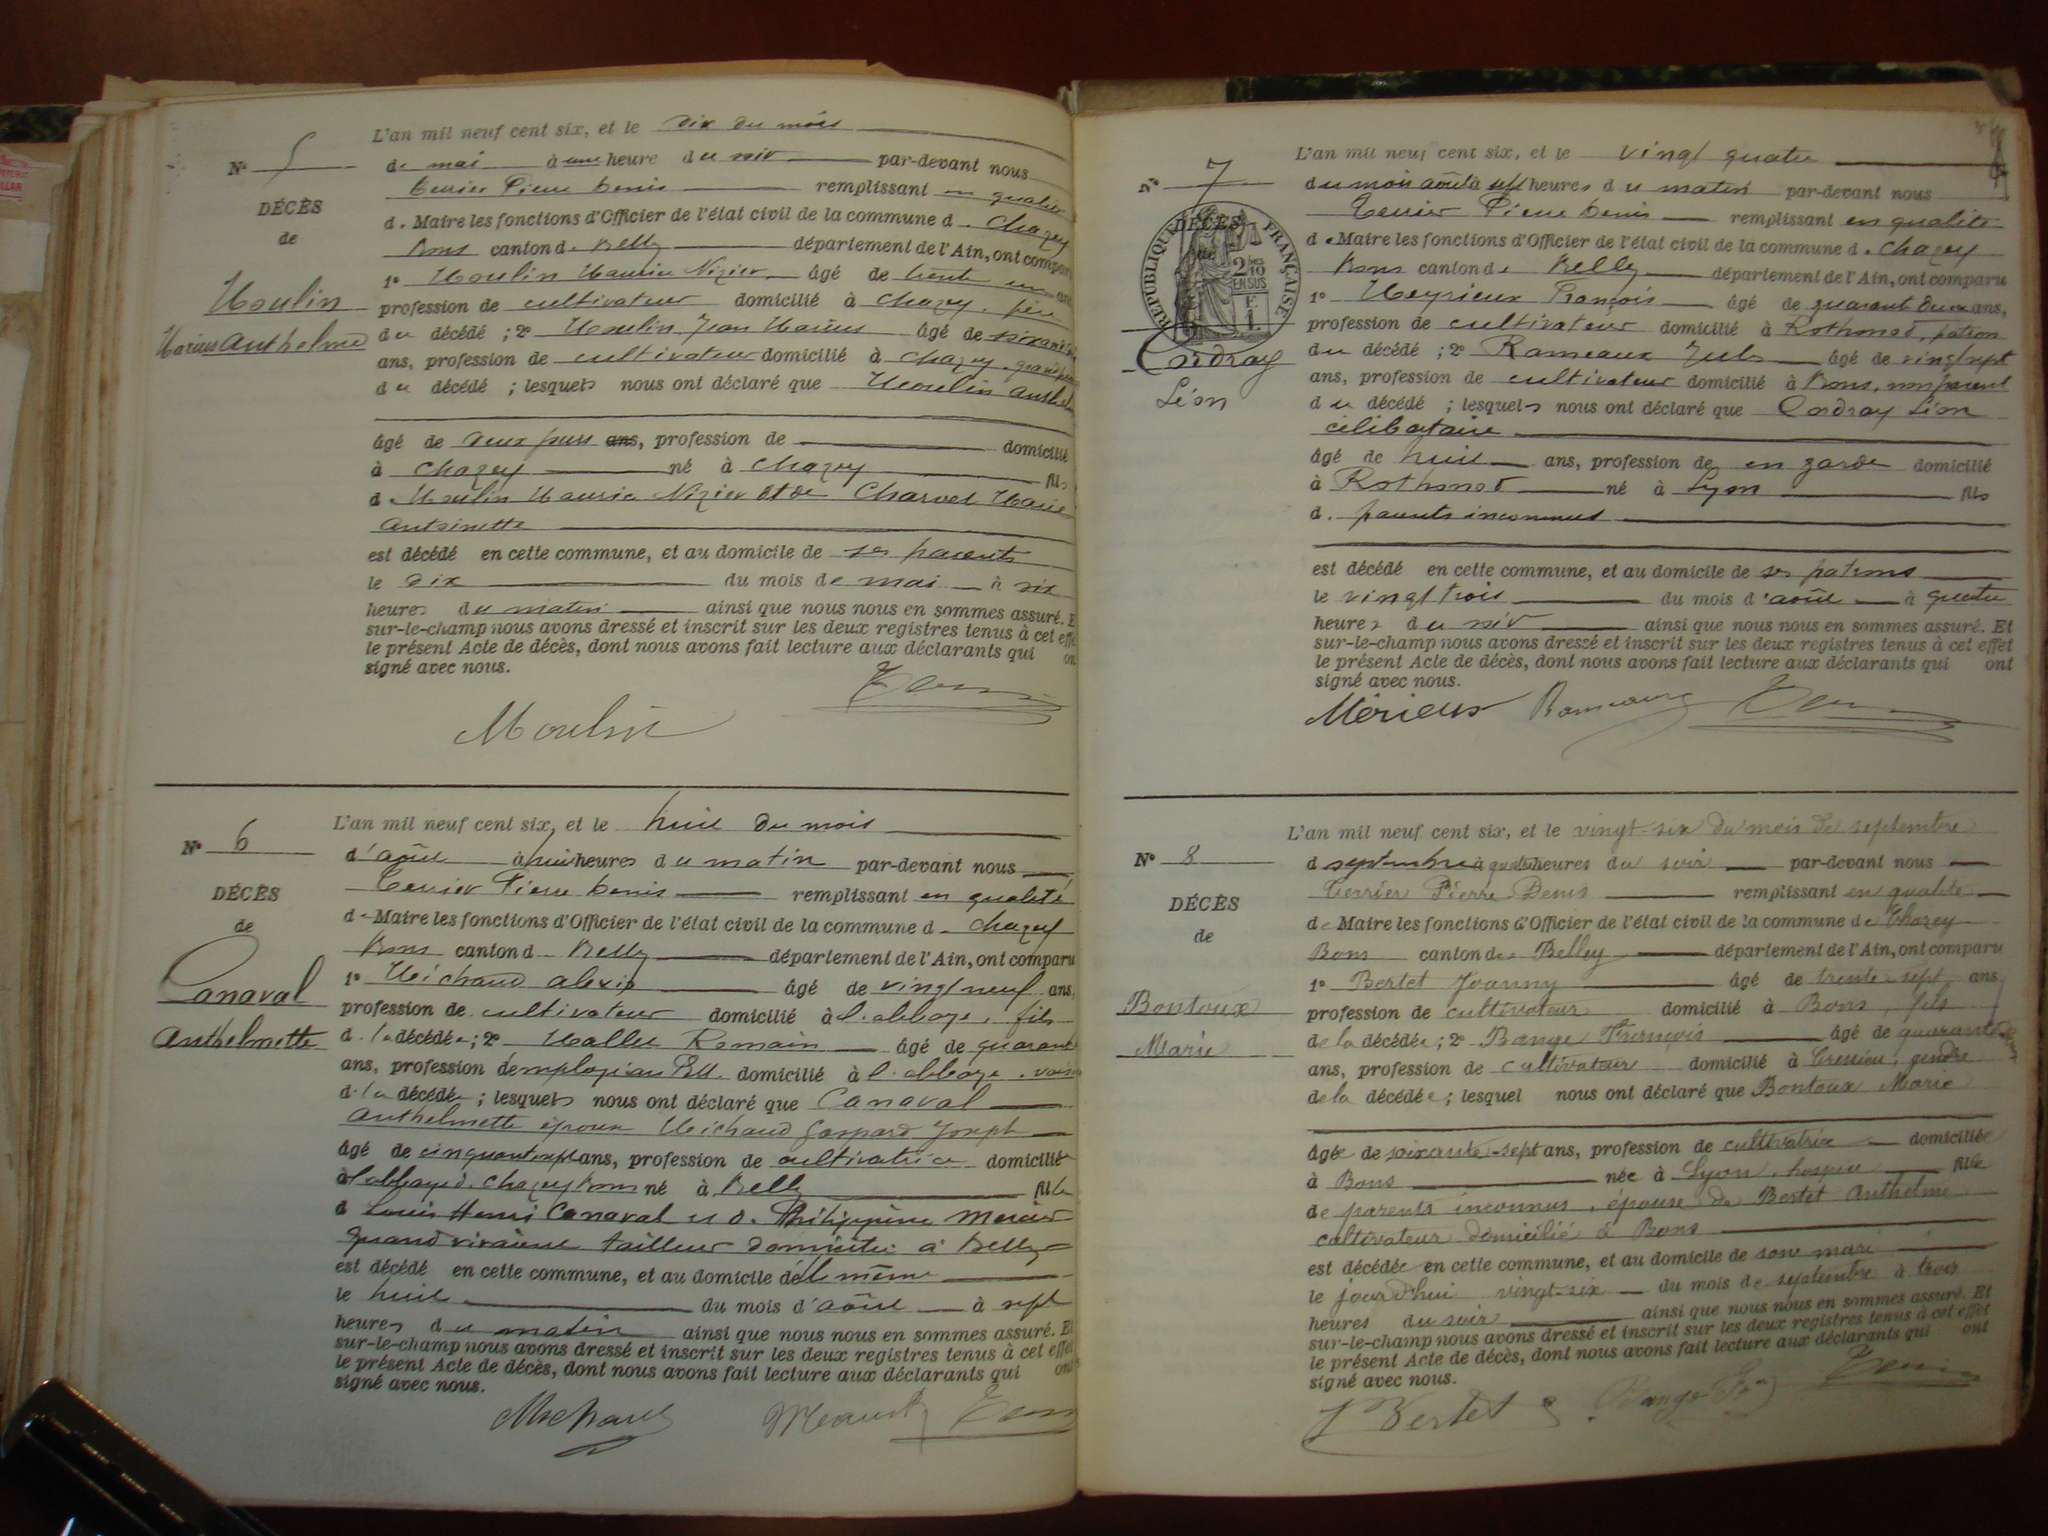 N° 5
DÉCÈS
de
Moulin
Marius Anthelme
L'an mil neuf cent six, et le dix du mois
de mai à une heure du soir par-devant nous
Terrier Pierre Denis remplissant en qualité
de Maire les fonctions d'Officier de l'état civil de la commune d. Chazey
Bons canton de Belley département de l'Ain, ont comparu
1° Moulin Maurice Nizier âgé de trente un ans
profession de cultivateur domicilié à Chazey, père
du décédé ; 2° Moulin Jean Marius âgé de soixante
ans, profession de cultivateur domicilié à Chazey, grand père
du décédé ; lesquels nous ont déclaré que Moulin Anthelme
âgé de deux jours ans, profession de domicilié
à Chazey né à Chazey fils
d. Moulin Maurice Nizier et de Charvet Marie
Antoinette
est décédé en cette commune, et au domicile de ses parents
le dix du mois de mai à six
heures du matin ainsi que nous nous en sommes assuré. Et
sur-le-champ nous avons dressé et inscrit sur les deux registres tenus à cet effet
le présent Acte de décès, dont nous avons fait lecture aux déclarants qui ont
signé avec nous.
Moulin
N° 6
DÉCÈS
de
Canaval
Anthelmette
L'an mil neuf cent six, et le huit du mois
d'août à huit heures du matin par-devant nous
Terrier Pierre Denis remplissant en qualité
d. Maire les fonctions d'Officier de l'état civil de la commune d. Chazey
Bons canton d. Belley département de l'Ain, ont comparu
1° Michaud Alexis âgé de vingt neuf ans,
profession de cultivateur domicilié à l'abbaye, fils
d. la décédée ; 2° Mallet Romain âgé de quarante
ans, profession d'employé au PLM domicilié à l'abbaye, voisin
d. la décédée ; lesquels nous ont déclaré que Canaval
Anthelmette époux Michaud Gaspard Joseph
âgé de cinquante sept ans, profession de cultivatrice domicilié
à l'abbaye d. Chazey Bons né à Belley fille
d. Louis Henri Canaval et d. Philippine Mercier
quand vivaient tailleur domicilié à Belley
est décédé en cette commune, et au domicile de le même
le huit du mois d'août à sept
heures du matin ainsi que nous nous en sommes assuré. Et
sur-le-champ nous avons dressé et inscrit sur les deux registres tenus à cet effet
le présent Acte de décès, dont nous avons fait lecture aux déclarants qui ont
signé avec nous.
Michaud
N° 7
DÉCÈS
RÉPUBLIQUE FRANÇAISE
2/10 EN SUS
Cordray
Léon
L'an mil neuf cent six, et le vingt quatre
du mois août à sept heures du matin par-devant nous
Terrier Pierre Denis remplissant en qualité
de Maire les fonctions d'Officier de l'état civil de la commune d. Chazey
Bons canton de Belley département de l'Ain, ont comparu
1° Meyrieux François âgé de quarante deux ans,
profession de cultivateur domicilié à Rothonod, patron
du décédé ; 2° Rameaux Jules âgé de vingt sept
ans, profession de cultivateur domicilié à Bons, non parent
du décédé ; lesquels nous ont déclaré que Cordray Léon
célibataire
âgé de huit ans, profession de en garde domicilié
à Rothonod né à Lyon fils
d. parents inconnus
est décédé en cette commune, et au domicile de ses patrons
le vingt trois du mois d'août à quatre
heures du soir ainsi que nous nous en sommes assuré. Et
sur-le-champ nous avons dressé et inscrit sur les deux registres tenus à cet effet
le présent Acte de décès, dont nous avons fait lecture aux déclarants qui ont
signé avec nous.
Mérieux Rameaux
N° 8
DÉCÈS
de
Bontoux
Marie
L'an mil neuf cent six, et le vingt-six du mois de septembre
d septembre à quatre heures du soir par-devant nous
Terrier Pierre Denis remplissant en qualité
de Maire les fonctions d'Officier de l'état civil de la commune de Chazey
Bons canton de Belley département de l'Ain, ont comparu
1° Bertet Joanny âgé de trente-sept ans
profession de cultivateur domicilié à Bons, fils
de la décédée ; 2° Bange François âgé de quarante
ans, profession de cultivateur domicilié à Cressieu, gendre
de la décédée ; lesquel nous ont déclaré que Bontoux Marie
âgée de soixante-sept ans, profession de cultivatrice domiciliée
à Bons née à Lyon, hospice fille
de parents inconnus, épouse de Bertet Anthelme
cultivateur domicilié à Bons
est décédée en cette commune, et au domicile de son mari
le jourd'hui vingt-six du mois de septembre à trois
heures du soir ainsi que nous nous en sommes assuré. Et
sur-le-champ nous avons dressé et inscrit sur les deux registres tenus à cet effet
le présent Acte de décès, dont nous avons fait lecture aux déclarants qui ont
signé avec nous.
J Bertet Bange